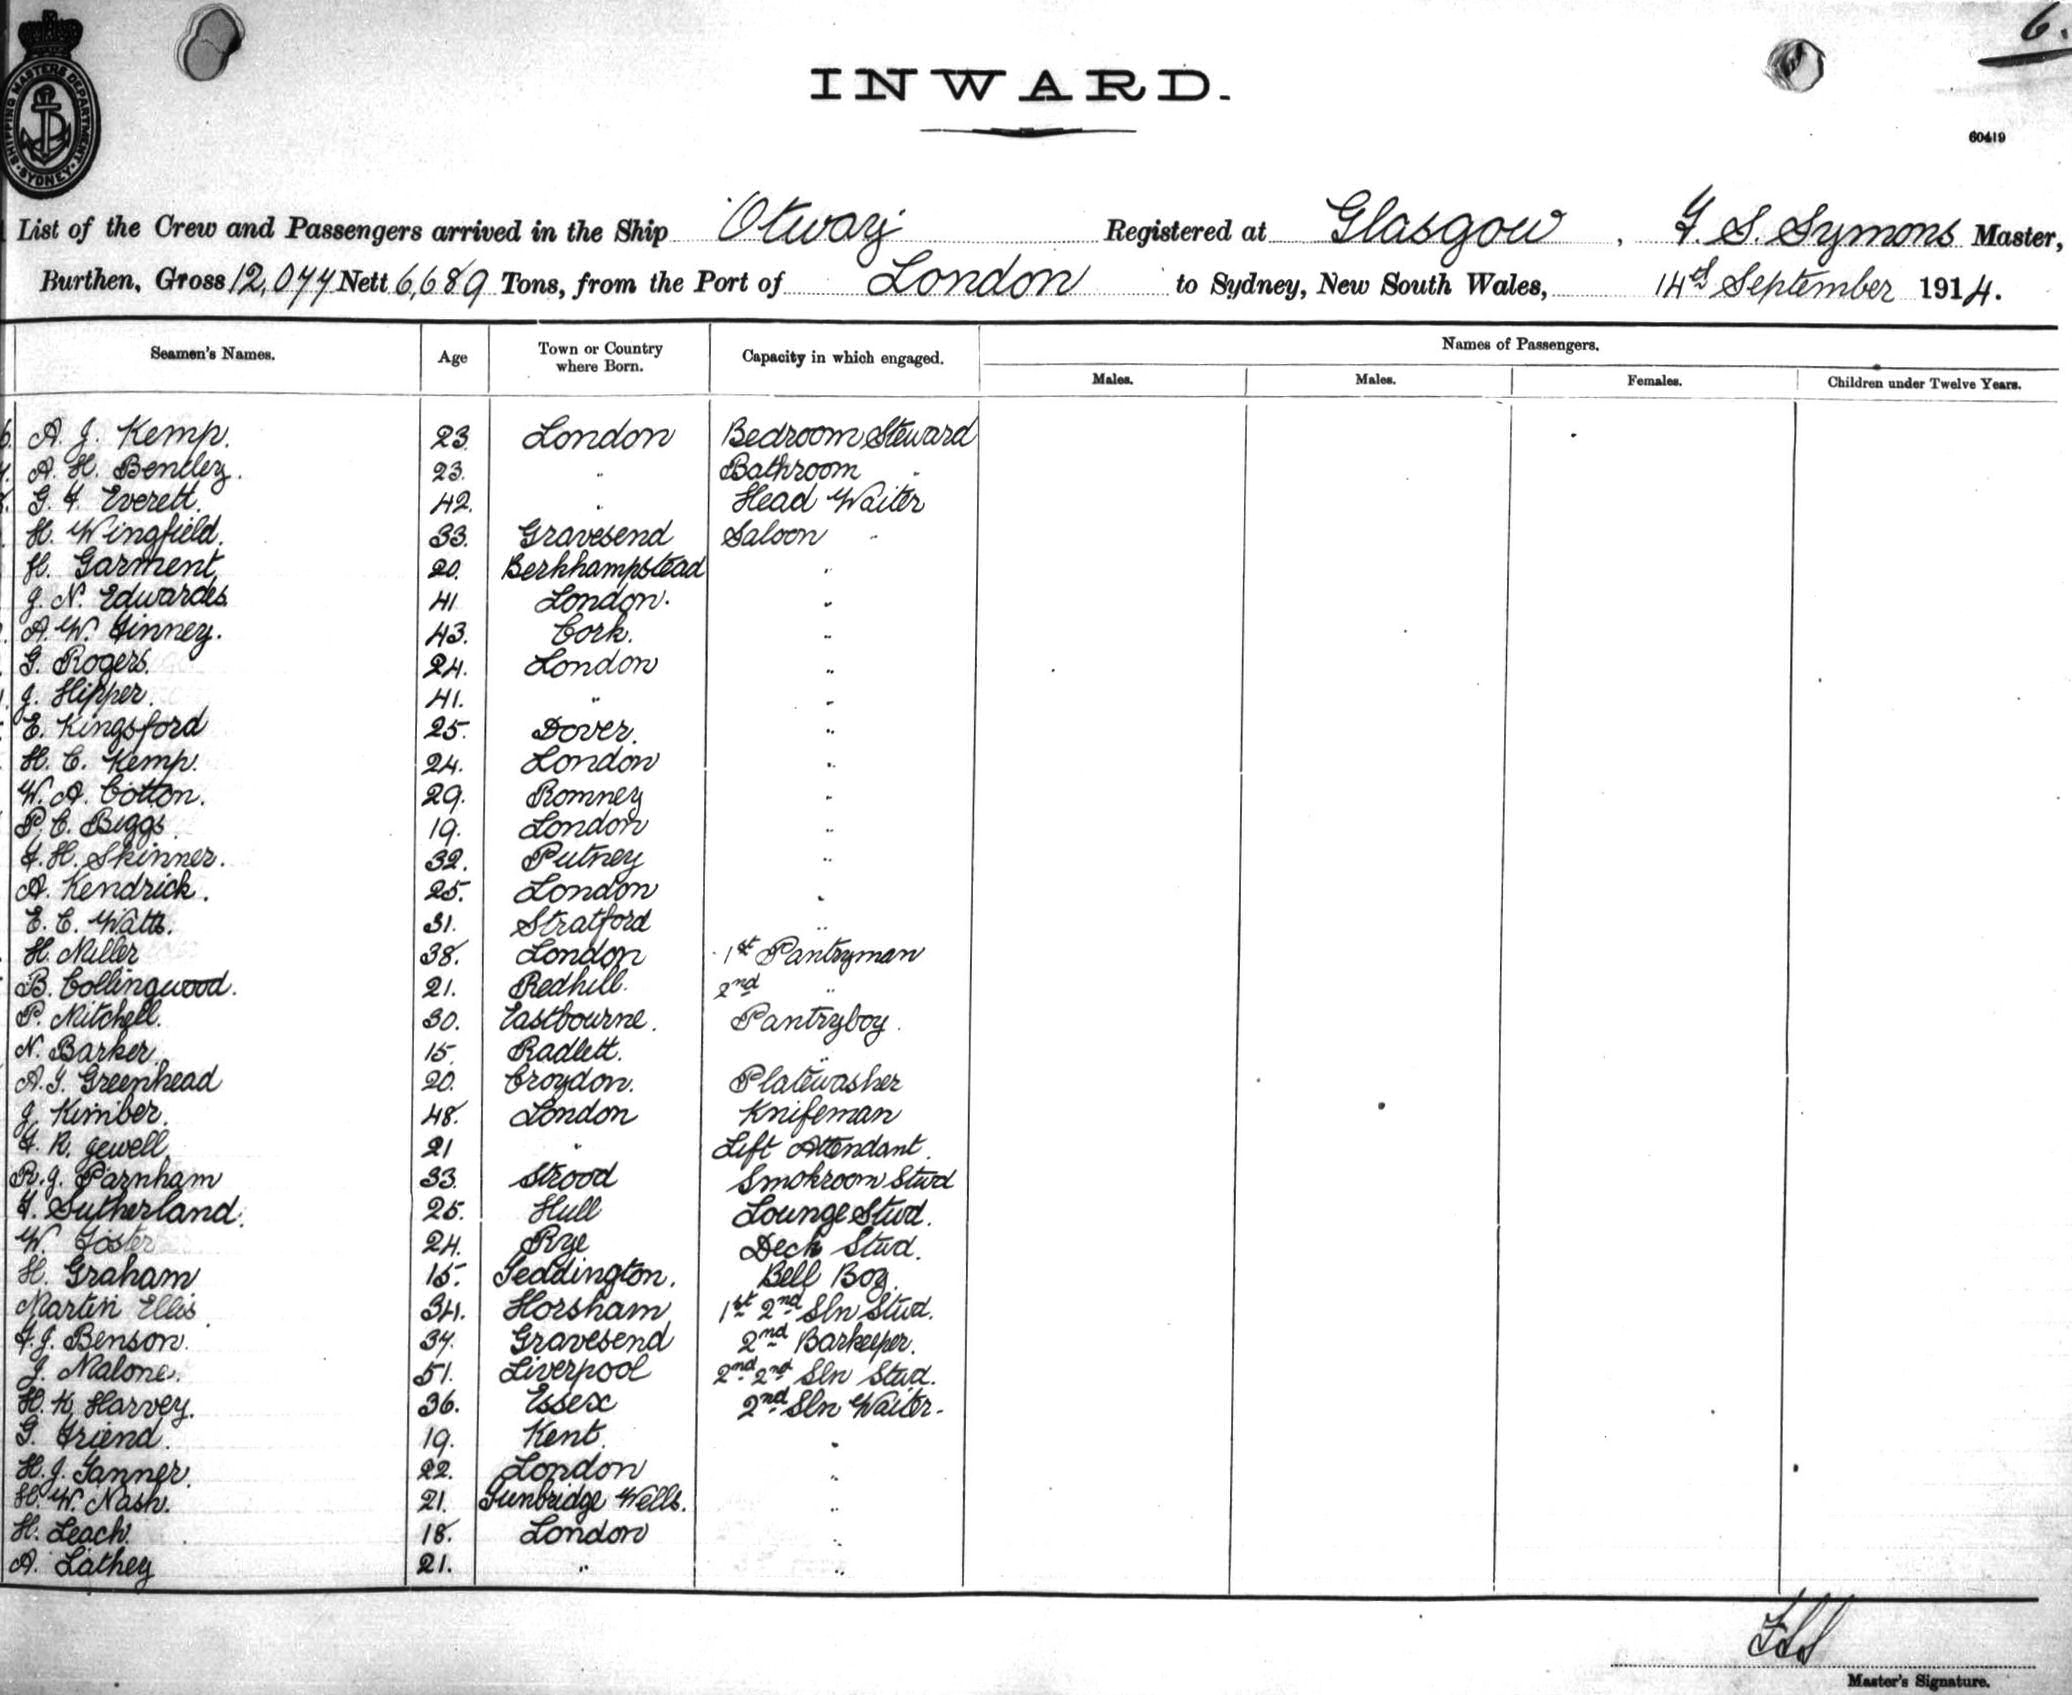 6.
SHIPPING MASTERS DEPARTMENT
SYDNEY
INWARD.
60419
List of the Crew and Passengers arrived in the Ship Otway Registered at Glasgow, F. S. Symons Master,
Burthen, Gross 12,077 Nett 6,689 Tons, from the Port of London to Sydney, New South Wales, 14th September 1914.
Seamen's Names. Age Town or Country where Born. Capacity in which engaged. Names of Passengers.
Males. Males. Females. Children under Twelve Years.
A. J. Kemp. 23. London Bedroom Steward
A. H. Bentley. 23. " Bathroom "
G. F. Everett. 42. " Head Waiter
H. Wingfield. 33. Gravesend Saloon "
H. Garment 20. Berkhampstead "
J. N. Edwardes 41 London. "
A. W. Finney. 43. Cork. "
G. Rogers. 24. London "
J. Hipper. 41. " "
E. Kingsford 25. Dover. "
H. C. Kemp. 24. London "
W. A. Cotton. 29. Romney "
P. C. Biggs. 19. London "
F. H. Skinner. 32. Putney "
A. Kendrick. 25. London "
E. C. Watts. 31. Stratford "
H. Miller 38. London 1st Pantryman
B. Collingwood. 21. Redhill. 2nd "
P. Mitchell. 30. Eastbourne. Pantryboy.
N. Barker. 15. Radlett. "
A. J. Greenhead 20. Croydon. Platewasher
J. Kimber. 48. London Knifeman
F. R. Jewell. 21 " Lift Attendant.
R. J. Parnham 33. Strood Smokroom Stwd
F. Sutherland. 25. Hull Lounge Stwd.
W. Foster 24. Rye Deck Stwd.
H. Graham 15. Teddington. Bell Boy.
Martin Ellis. 34. Horsham 1st 2nd Sln Stwd.
F. J. Benson. 37. Gravesend 2nd Barkeeper.
J. Malone. 51. Liverpool 2nd 2nd Sln Stwd.
H. K. Harvey. 36. Essex 2nd Sln Waiter.
G. Friend. 19. Kent. "
H. J. Tanner. 22. London "
H. W. Nash. 21. Tunbridge Wells. "
H. Leach. 18. London "
A. Lathey 21. " "
Master's Signature.